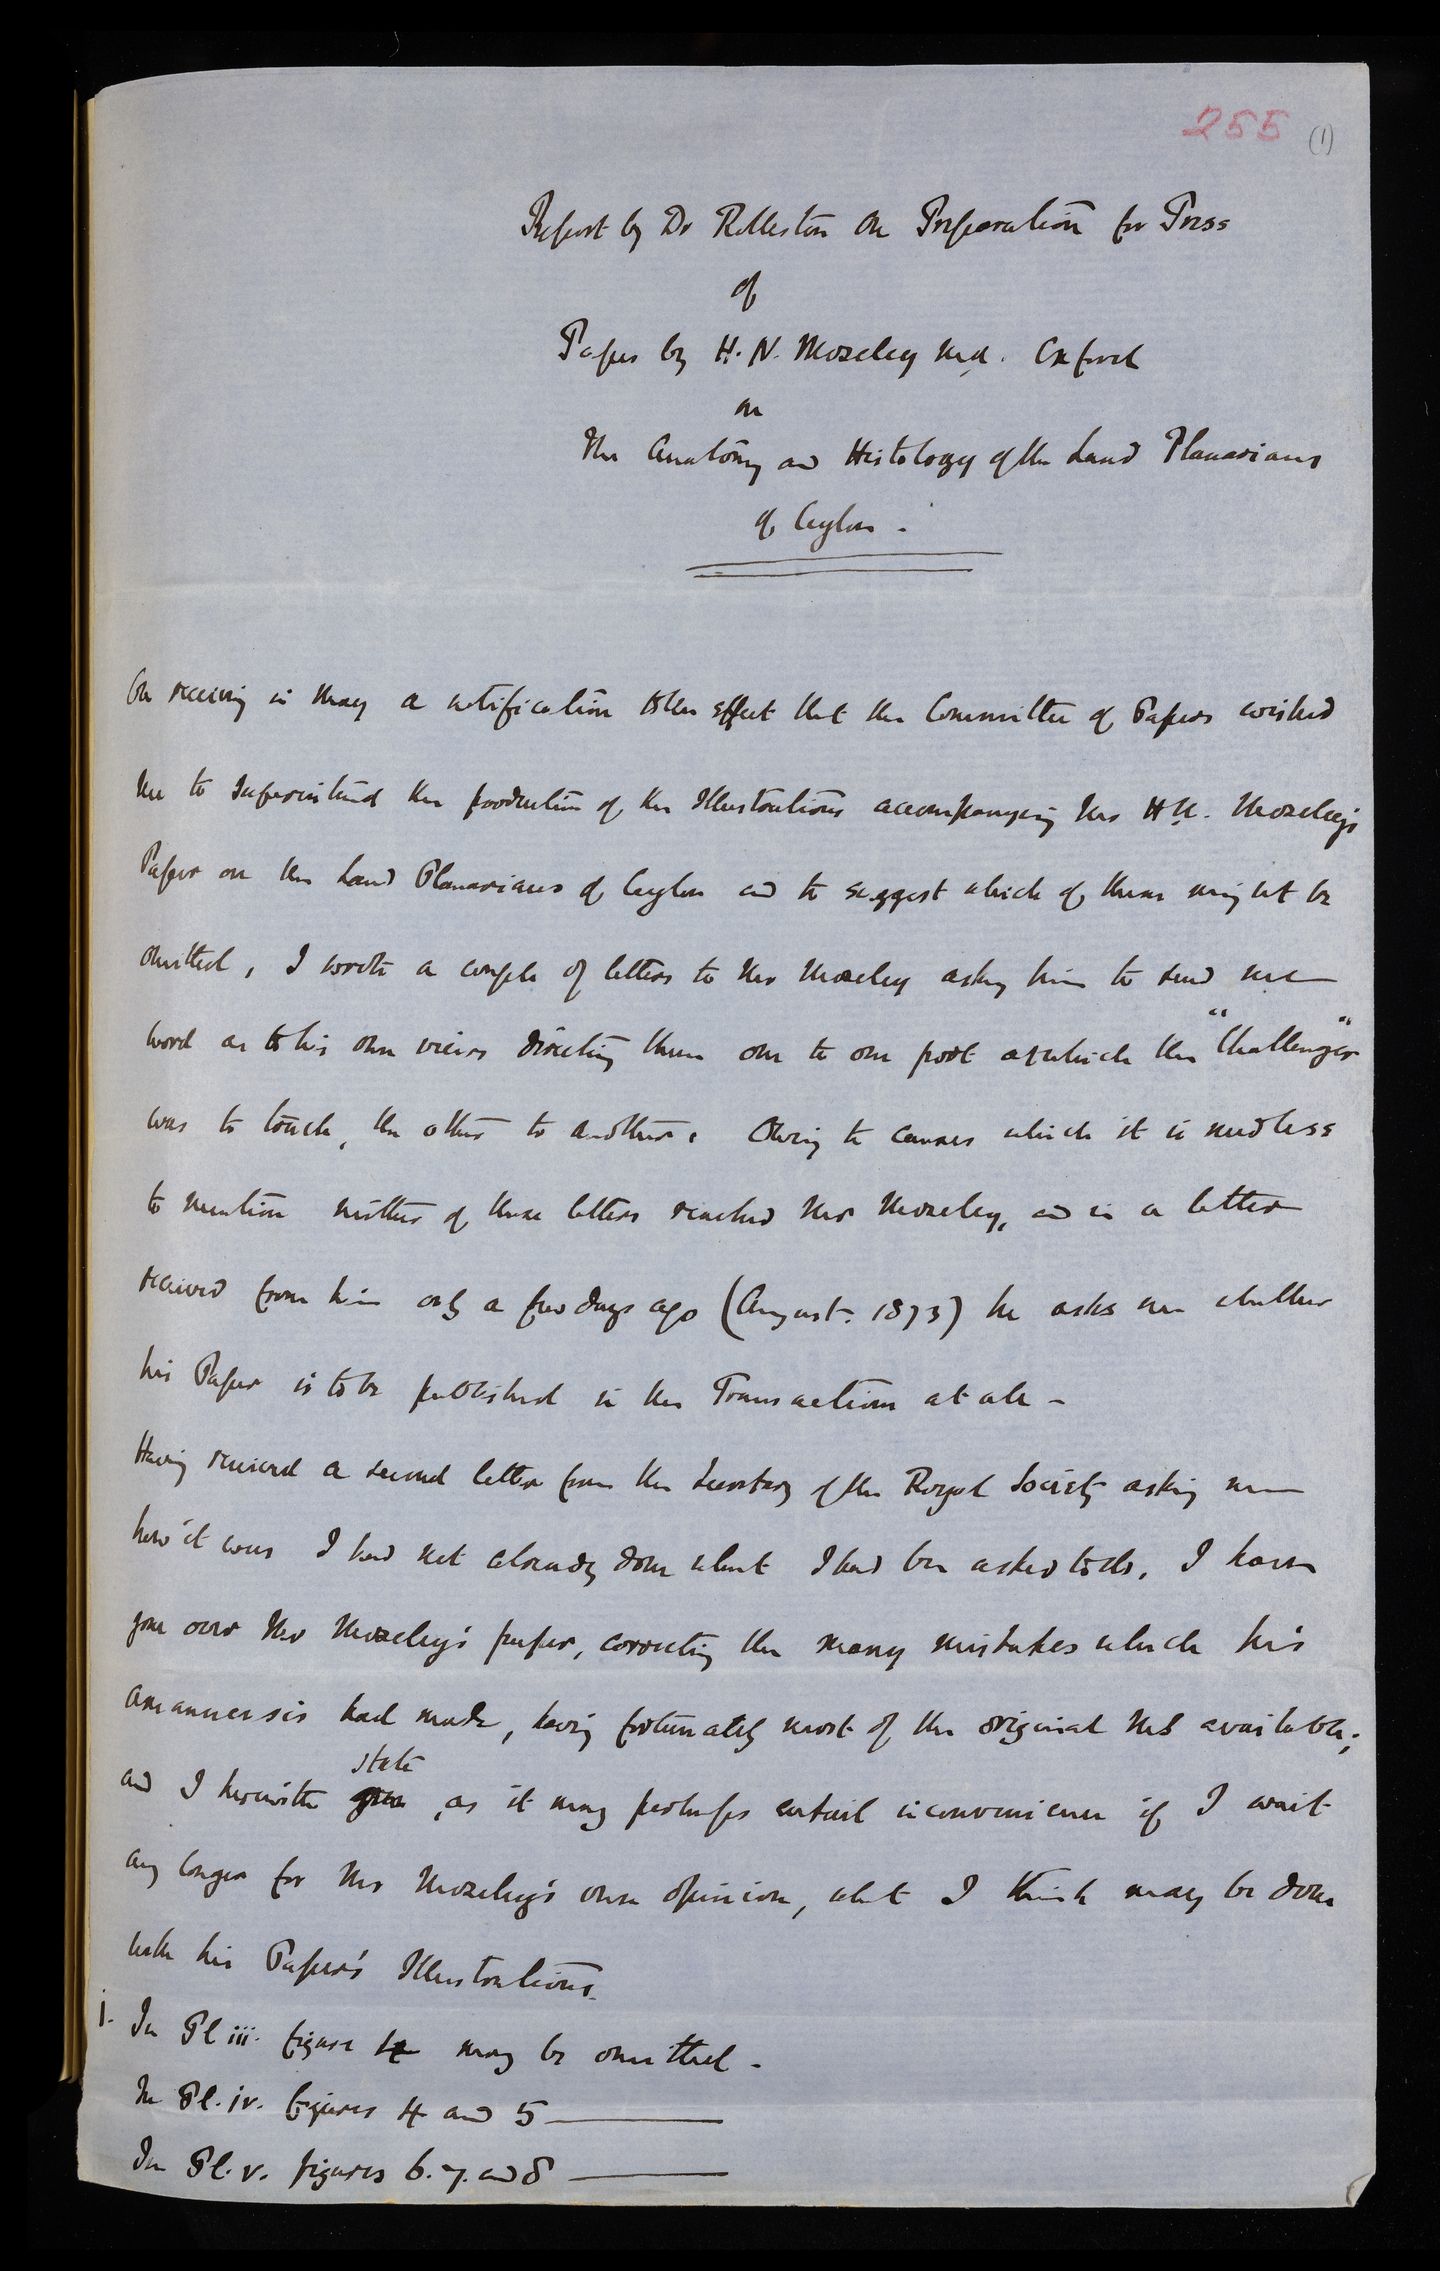 255 (1)
Report by Dr Rolleston on Preparation for Press
of
Paper by H. N. Moseley M.A. Oxford
on
The Anatomy and Histology of the Land Planarians
of Ceylon.
On receiving in May a notification to the effect that the Committee of Papers wished
me to superintend the production of the Illustrations accompanying Mr H N. Moseley's
Paper on the Land Planarians of Ceylon and to suggest which of them might be
omitted, I wrote a couple of letters to Mr Moseley asking him to send me
word as to his own views directing them one to one port at which the "Challenger"
was to touch, the other to another. Owing to causes which it is needless
to mention neither of these letters reached Mr Moseley, and in a letter
received from him only a few days ago (August. 1873) he asks me whether
his Paper is to be published in the Transactions at all -
Having received a second letter from the Secretary of the Royal Society asking me
how it was I had not already done what I had been asked to do, I have
gone over Mr Moseley's paper, correcting the many mistakes which his
amanuensis had made, having fortunately most of the original MS available;
and I herewith state, as it may perhaps entail inconvenience if I wait
any longer for Mr Moseley's own opinion, what I think may be done
with his Paper's Illustrations.
i. In Pl iii. figure may be omitted -
In Pl. iv. figures 4 and 5 ———
In Pl. v. figures 6. 7. and 8 ———